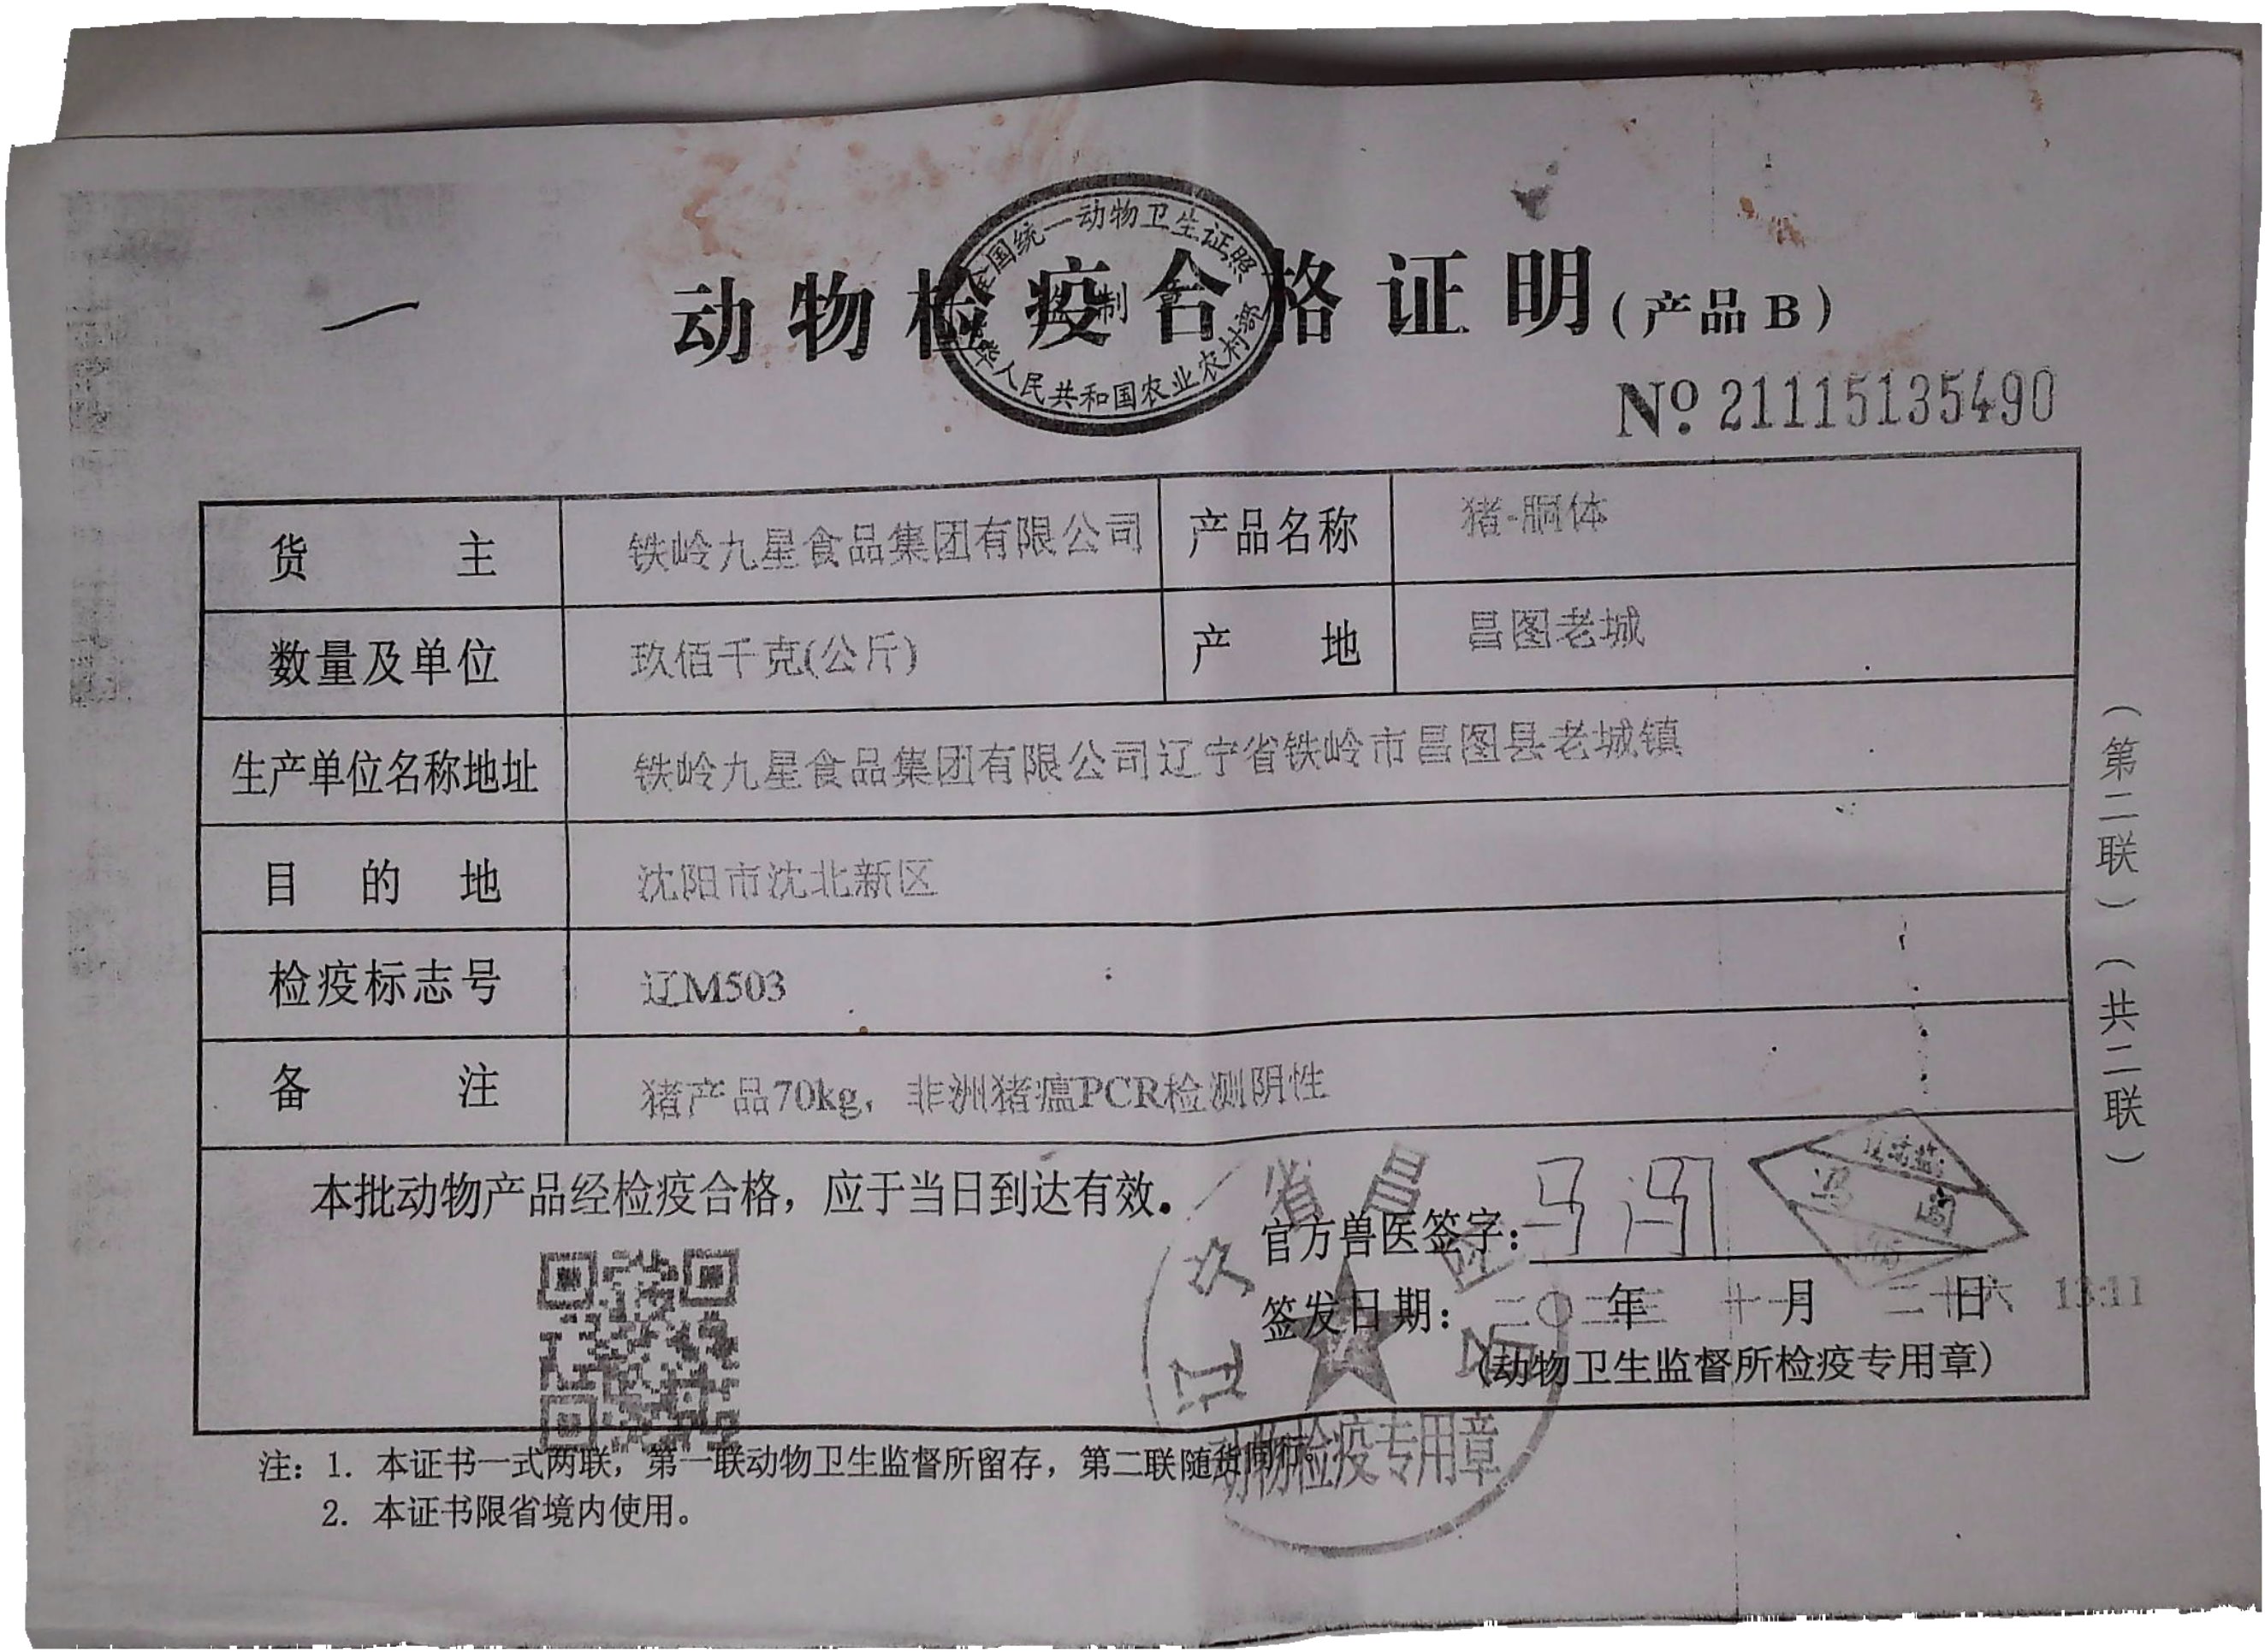 全国统一动物卫生证照
监制章
中华人民共和国农业农村部
动物检疫合格证明(产品B)
№ 21115135490
货主 铁岭九星食品集团有限公司 产品名称 猪-胴体
数量及单位 玖佰千克(公斤) 产地 昌图老城
生产单位名称地址 铁岭九星食品集团有限公司辽宁省铁岭市昌图县老城镇
目的地 沈阳市沈北新区
检疫标志号 辽M503
备注 猪产品70kg，非洲猪瘟PCR检测阴性
本批动物产品经检疫合格，应于当日到达有效。
官方兽医签字：
签发日期：二〇二三年 十一月 二十六日 13:11
(动物卫生监督所检疫专用章)
动物检疫专用章
注：1. 本证书一式两联，第一联动物卫生监督所留存，第二联随货同行。
2. 本证书限省境内使用。
(第二联)(共二联)